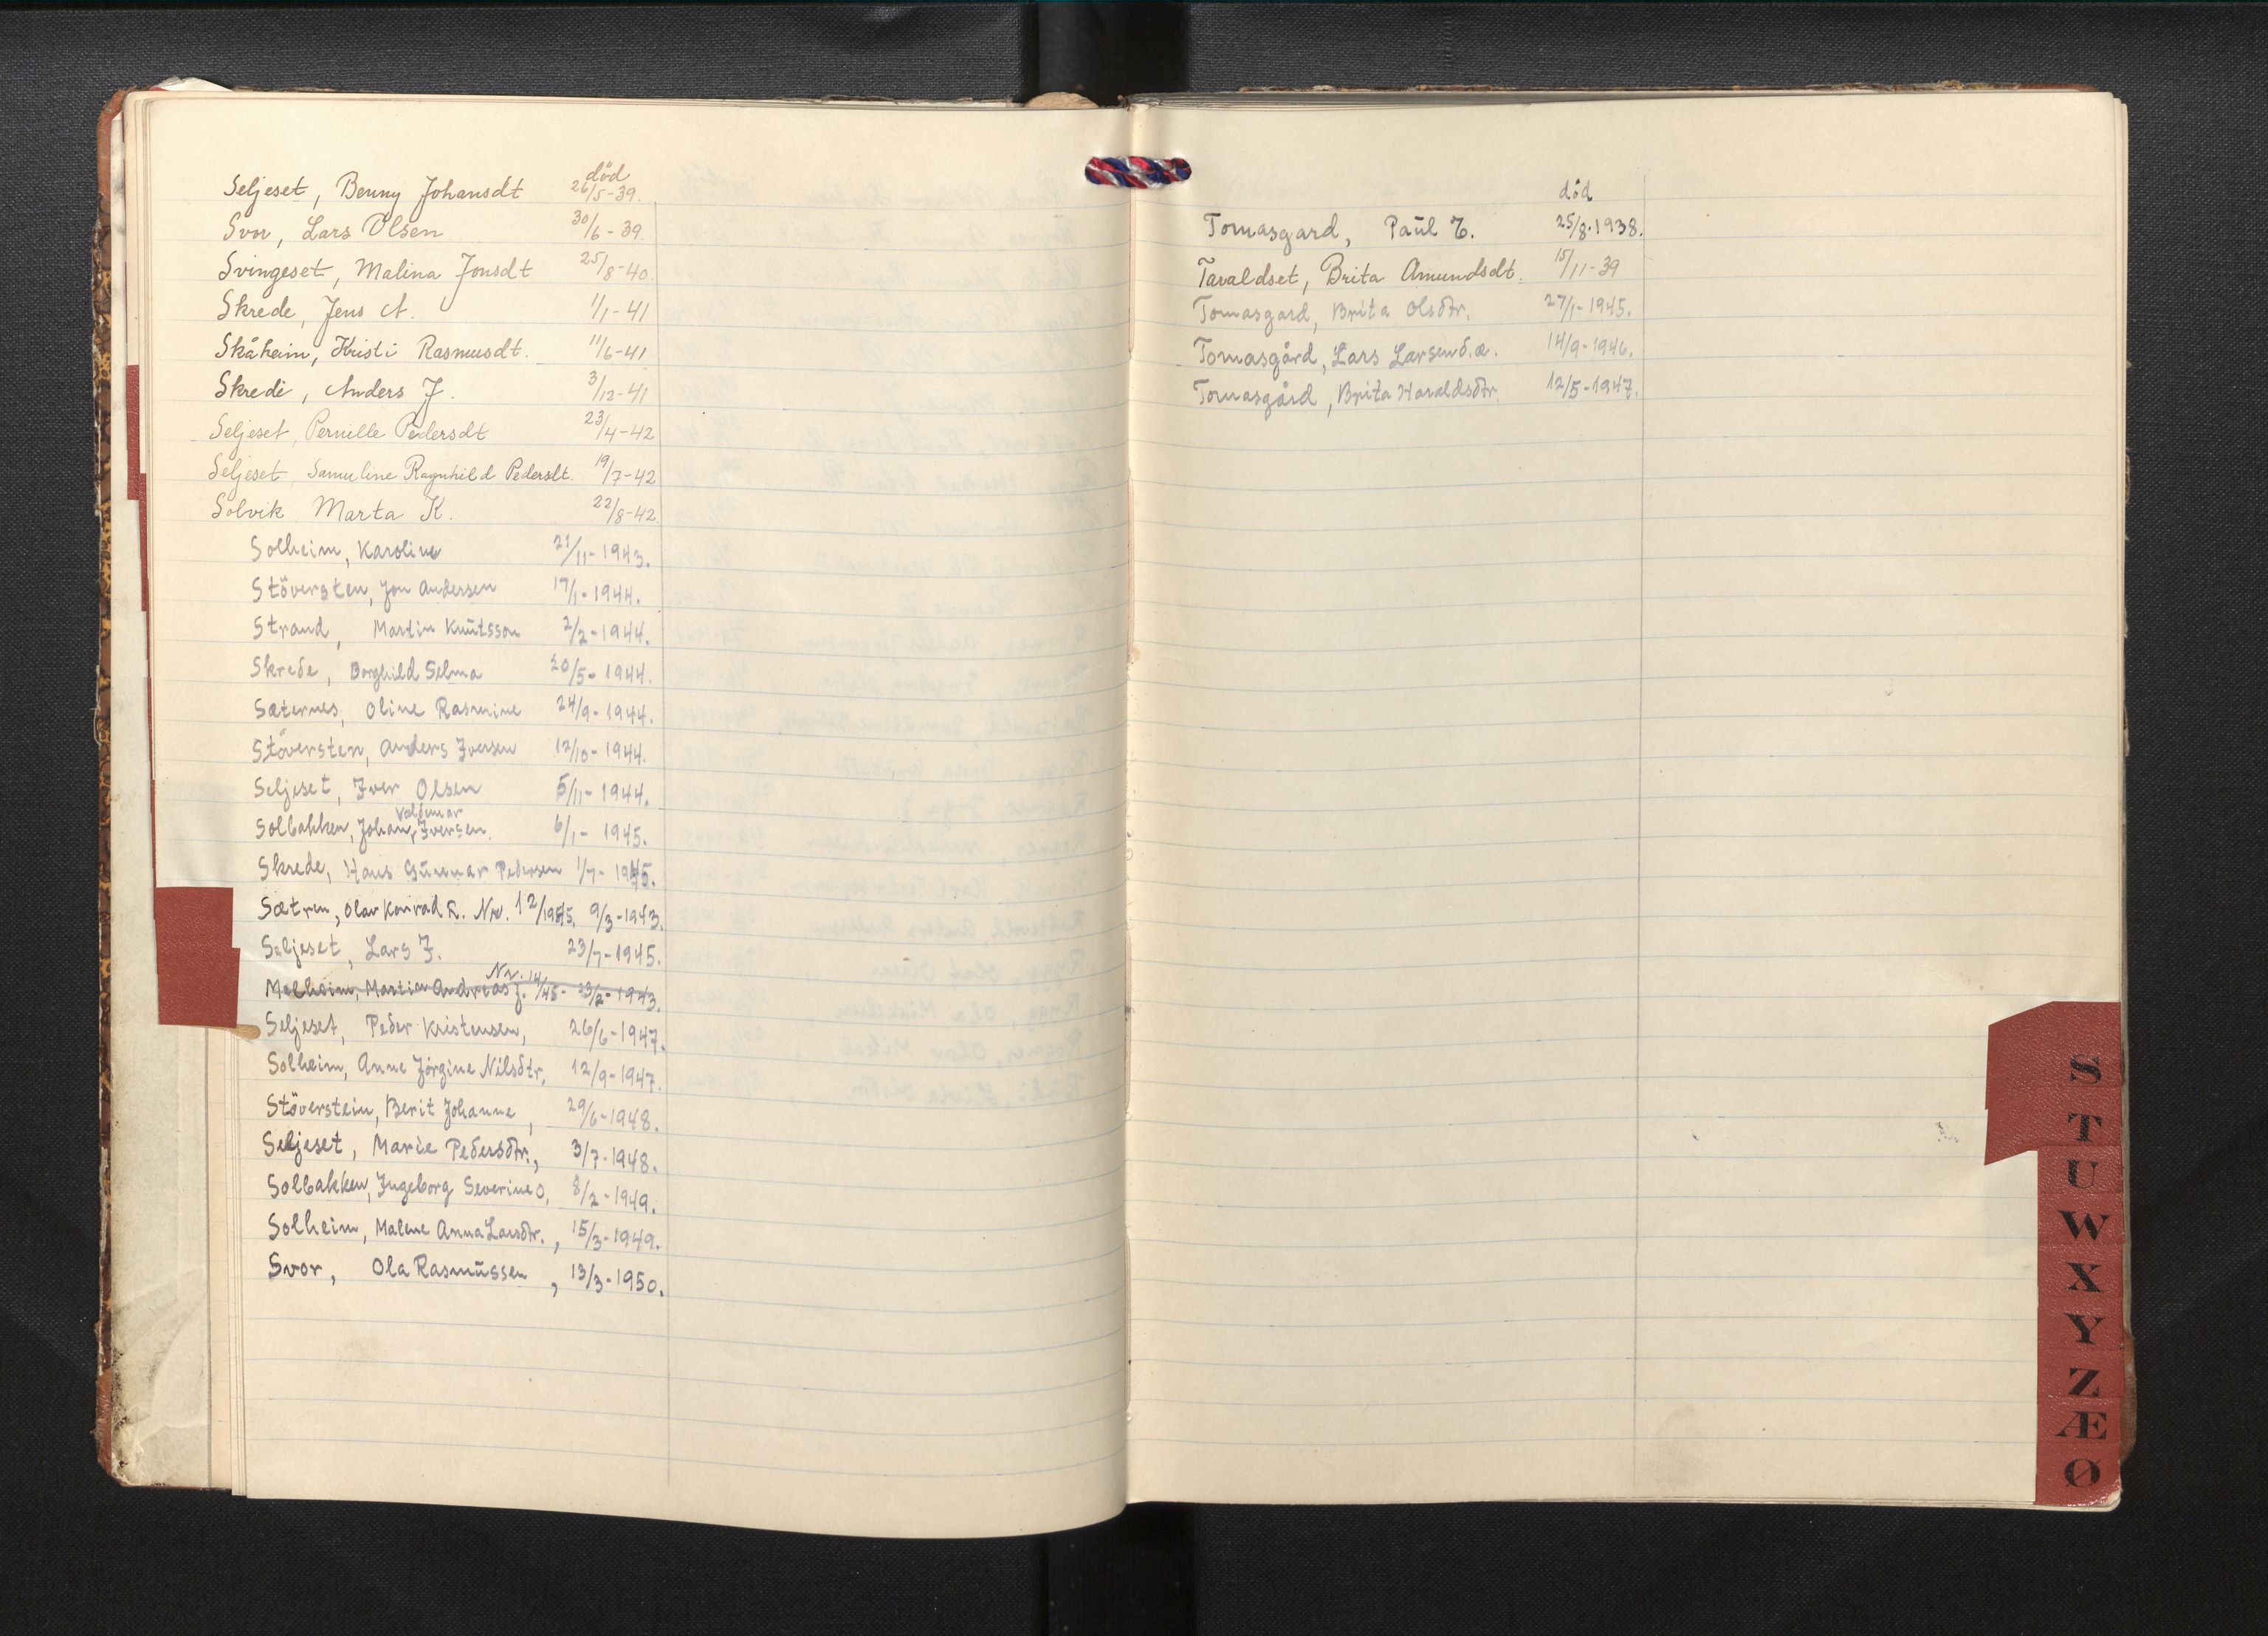 död
Seljeset, Benny Johansdt 26/5-39.
Svor, Lars Olsen 30/6-39.
Svingeset, Malina Jonsdt 25/8-40.
Skrede, Jens A. 1/1-41
Skåheim, Kristi Rasmusdt. 11/6-41
Skrede, Anders J. 3/12-41
Seljeset, Pernille Pedersdt 23/4-42
Seljeset Samuline Ragnhild Pedersdt. 19/7-42
Solvik Marta K. 22/8-42
Solheim, Karoline 21/11-1943.
Stöversten, Jon Andersen 17/1-1944.
Strand, Martin Knŭtsson 2/2-1944.
Skrede, Borghild Selma 20/5-1944.
Sæternes, Oline Rasmine 24/9-1944.
Stöversten, Anders Iversen 12/10-1944.
Seljeset, Iver Olsen 5/11-1944.
Valdemar
Solbakken, Johan, Iversen. 6/1-1945.
Skrede, Hans Gŭnnar Pedersen 1/7-1945.
Sætren, Olav Konrad R. Nr. 12/1945. 9/3-1943.
Seljeset, Lars J. 23/7-1945.
Nr. 14/45-
Melheim, Martin Andreas J. 23/2-1943.
Seljeset, Peder Kristensen, 26/6-1947.
Solheim, Anne Jörgine Nilsdtr, 12/9-1947.
Stöverstein, Berit Johanne, 29/6-1948.
Seljeset, Marie Pedersdtr., 3/7-1948.
Solbakken, Ingeborg Severine O, 8/2-1949.
Solheim, Malene Anna Larsdtr., 15/3-1949.
Svor, Ola Rasmŭssen, 13/3-1950.
död
Tomasgard, Paŭl T. 25/8-1938.
Tavaldset, Brita Amundsdt. 15/11-39
Tomasgard, Brita Olsdtr. 27/1-1945.
Tomasgård, Lars Larsen d.æ. 14/9-1946.
Tomasgård, Brita Haraldsdtr. 12/5-1947.
S
T
U
W
X
Y
Z
Æ
Ø